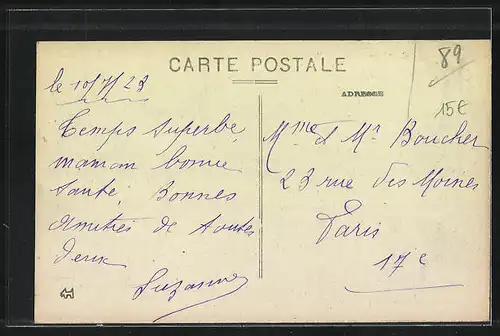 CARTE POSTALE
89
15€
ADRESSE
le 10/7/23
Temps superbe,
maman bonne
santé, Bonnes
Amitiés de toutes
deux
Suzanne
Mme et Mr Boucher
23 rue des Moines
Paris
17e